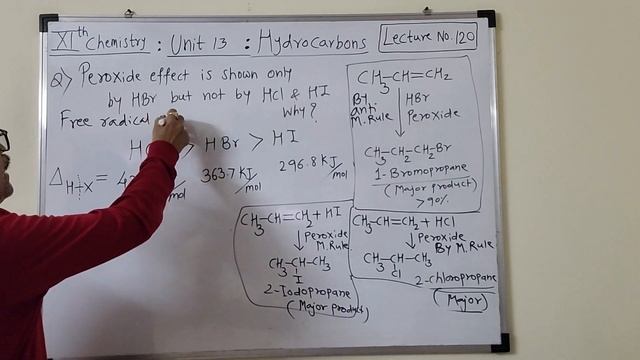 XIth Chemistry : Unit 13 : Hydrocarbons
Lecture No. 120
Q> Peroxide effect is shown only
by HBr but not by HCl & HI
Why?
Free radical
H > HBr > HI
ΔH-X = 42 mol 363.7 KJ/mol 296.8 KJ/mol
CH3-CH=CH2
By anti M. Rule
HBr
Peroxide
CH3-CH2-CH2Br
1-Bromopropane
(Major product)
>90%
CH3-CH=CH2 + HI
Peroxide
M. Rule
CH3-CH-CH3
I
2-Iodopropane
(Major product)
CH3-CH=CH2 + HCl
Peroxide
By M. Rule
CH3-CH-CH3
Cl
2-chloropropane
(Major)